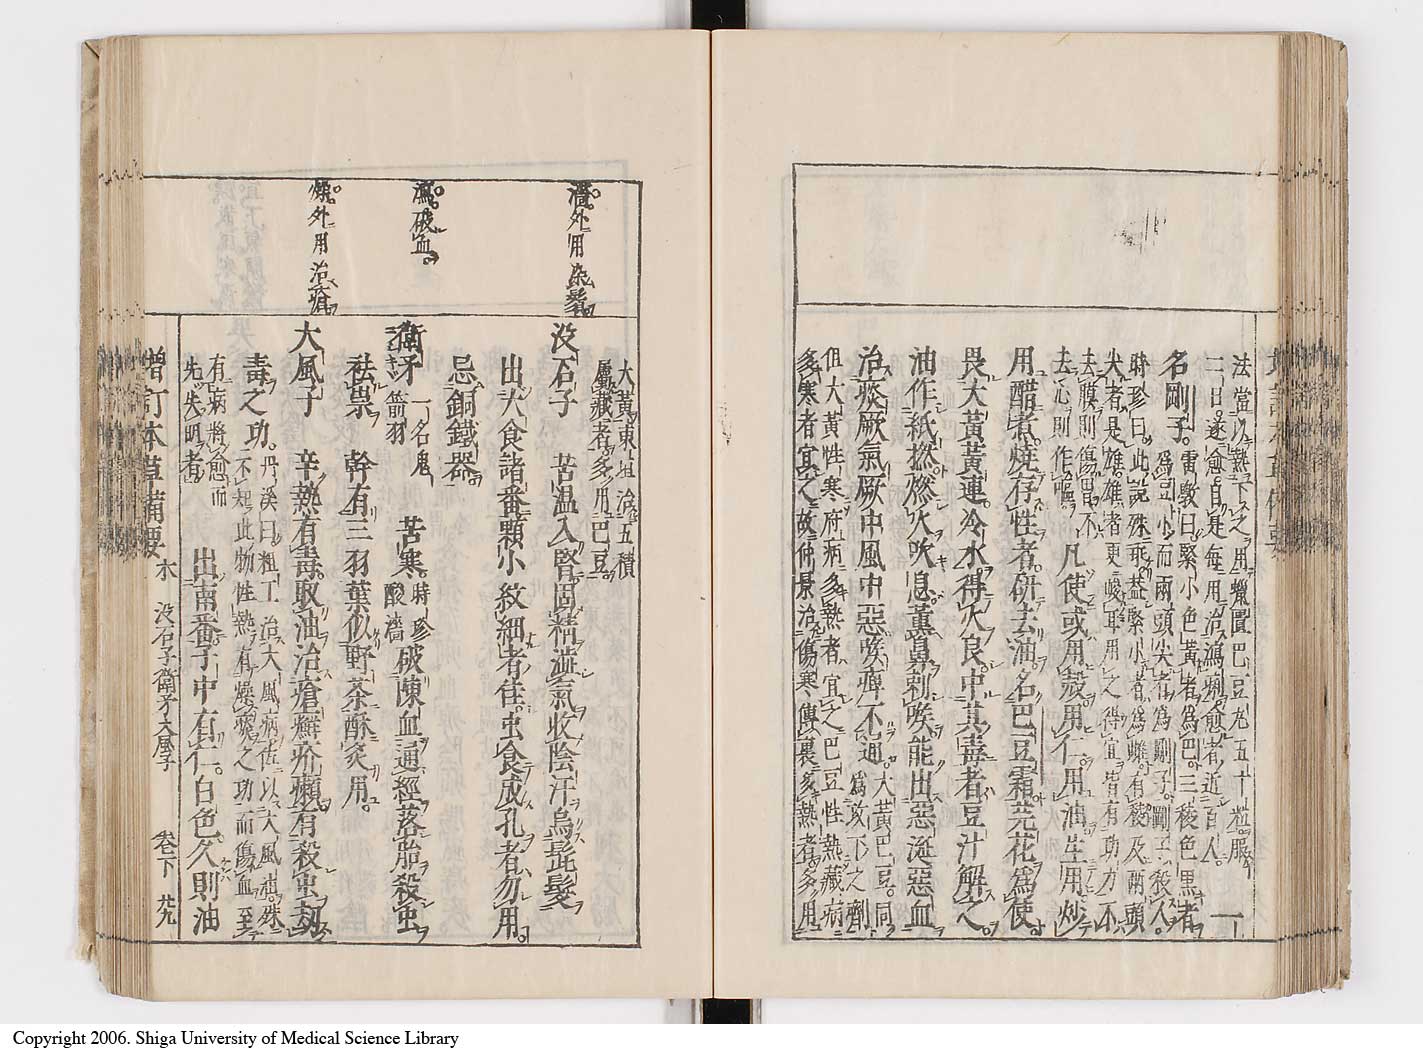 法當以熱下之用蠟匱巴豆丸五十粒服
二日遂愈自是每用治瀉痢愈者近百人 一
名剛子雷斅曰緊小色黃者為巴三稜色黑者
為豆小而兩頭尖者為剛子剛子殺人
時珍曰此說殊乖蓋緊小者為雌有稜及兩頭
尖者是雄雄者更峻耳用之得宜皆有功力不
去膜則傷胃不
去心則作嘔 凡使或用殼用仁用油生用炒
用醋煮燒存性者研去油名巴豆霜芫花為使
畏大黃黃連冷水得火良中其毒者豆汁解之
油作紙撚燃火吹息薰鼻刺喉能出惡涎惡血
治痰厥氣厥中風中惡喉痺不通大黃巴豆同
為攻下之劑
但大黃性寒府病多熱者宜之巴豆性熱藏病
多寒者宜之故仲景治傷寒傳裏多熱者多用
大黃東垣治五積
屬藏者多用巴豆
濇外用染鬚
沒石子 苦溫入腎固精澁氣收陰汗烏髭髮
出大食諸番顆小紋細者佳虫食成孔者勿用
忌銅鐵器
瀉破血
衛矛 一名鬼
箭羽 苦寒時珍
酸濇破陳血通經落胎殺虫
祛祟 幹有三羽葉似野茶酥炙用
燥外用治瘡
大風子 辛熱有毒取油治瘡癬疥癩有殺虫劫
毒之功丹溪曰粗工治大風病佐以大風油殊
不知此物性熱有燥痰之功而傷血至
有病將愈而
先失明者 出南番子中有仁白色久則油
增訂本草備要 木 沒石子衛矛大風子 卷下 九十九